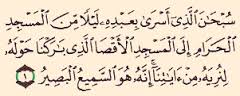 سُبْحَٰنَ ٱلَّذِىٓ أَسْرَىٰ بِعَبْدِهِۦ لَيْلًا مِّنَ ٱلْمَسْجِدِ
ٱلْحَرَامِ إِلَى ٱلْمَسْجِدِ ٱلْأَقْصَا ٱلَّذِى بَٰرَكْنَا حَوْلَهُۥ
لِنُرِيَهُۥ مِنْ ءَايَٰتِنَآ إِنَّهُۥ هُوَ ٱلسَّمِيعُ ٱلْبَصِيرُ ١